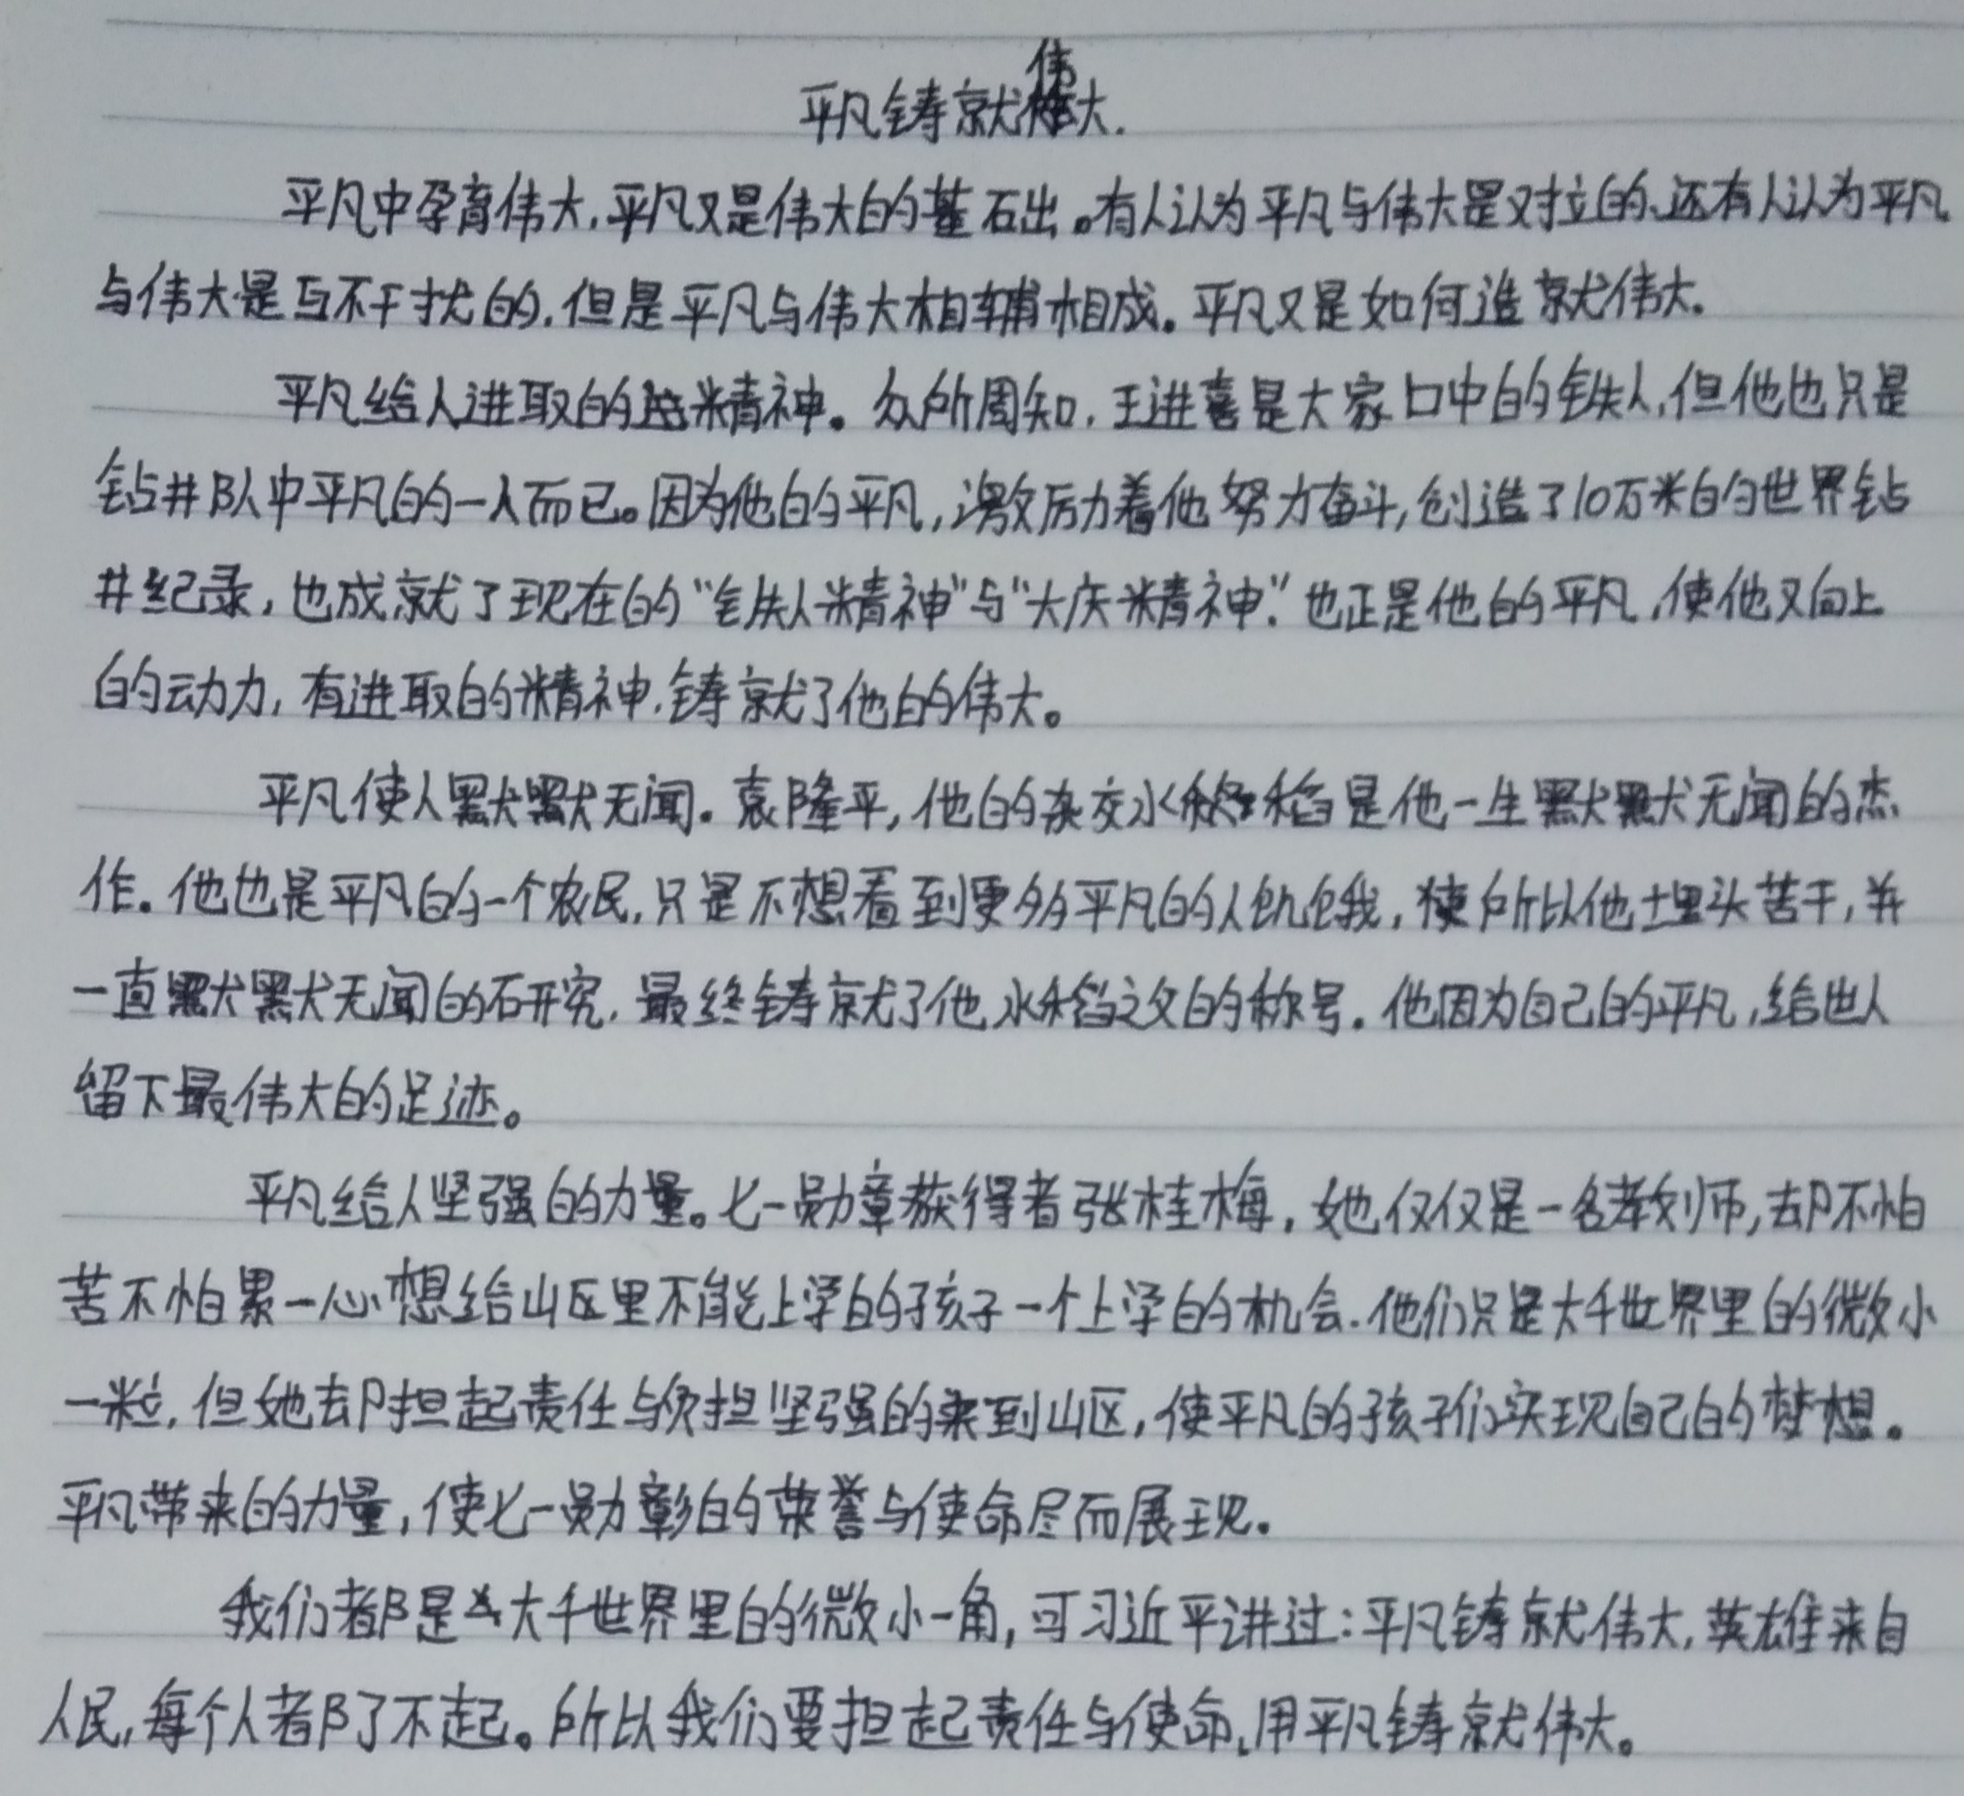 平凡铸就伟大.
平凡中孕育伟大,平凡又是伟大的基石出。有人认为平凡与伟大是对立的、还有人认为平凡
与伟大是互不干扰的,但是平凡与伟大相辅相成。平凡又是如何造就伟大.
平凡给人进取的精神。众所周知,王进喜是大家口中的铁人,但他也只是
钻井队中平凡的一人而已。因为他的平凡,激厉着他努力奋斗,创造了10万米的世界钻
井纪录,也成就了现在的“铁人精神”与“大庆精神”.也正是他的平凡,使他又向上
的动力,有进取的精神,铸就了他的伟大。
平凡使人默默无闻。袁隆平,他的杂交水稻是他一生默默无闻的杰
作。他也是平凡的一个农民,只是不想看到更多平凡的人饥饿,使所以他埋头苦干,并
一直默默无闻的研究,最终铸就了他水稻之父的称号。他因为自己的平凡,给世人
留下最伟大的足迹。
平凡给人坚强的力量。七一勋章获得者张桂梅,她仅仅是一名教师,却不怕
苦不怕累一心想给山区里不能上学的孩子一个上学的机会.他们只是大千世界里的微小
一粒,但她却担起责任与负担坚强的来到山区,使平凡的孩子们实现自己的梦想。
平凡带来的力量,使七一勋彰的荣誉与使命尽而展现。
我们都是大千世界里的微小一角,可习近平讲过:平凡铸就伟大,英雄来自
人民,每个人都了不起。所以我们要担起责任与使命,用平凡铸就伟大。